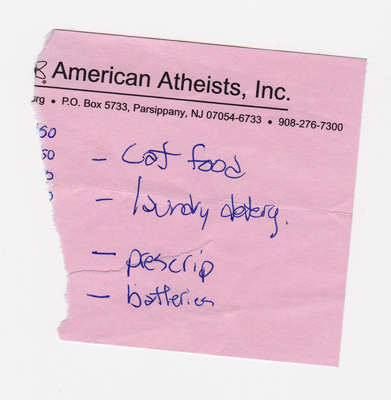 8. American Atheists, Inc.
org • P.O. Box 5733, Parsippany, NJ 07054-6733 • 908-276-7300
50
50
0
0
- cat food
- laundry deterg.
- prescrip
- batteries